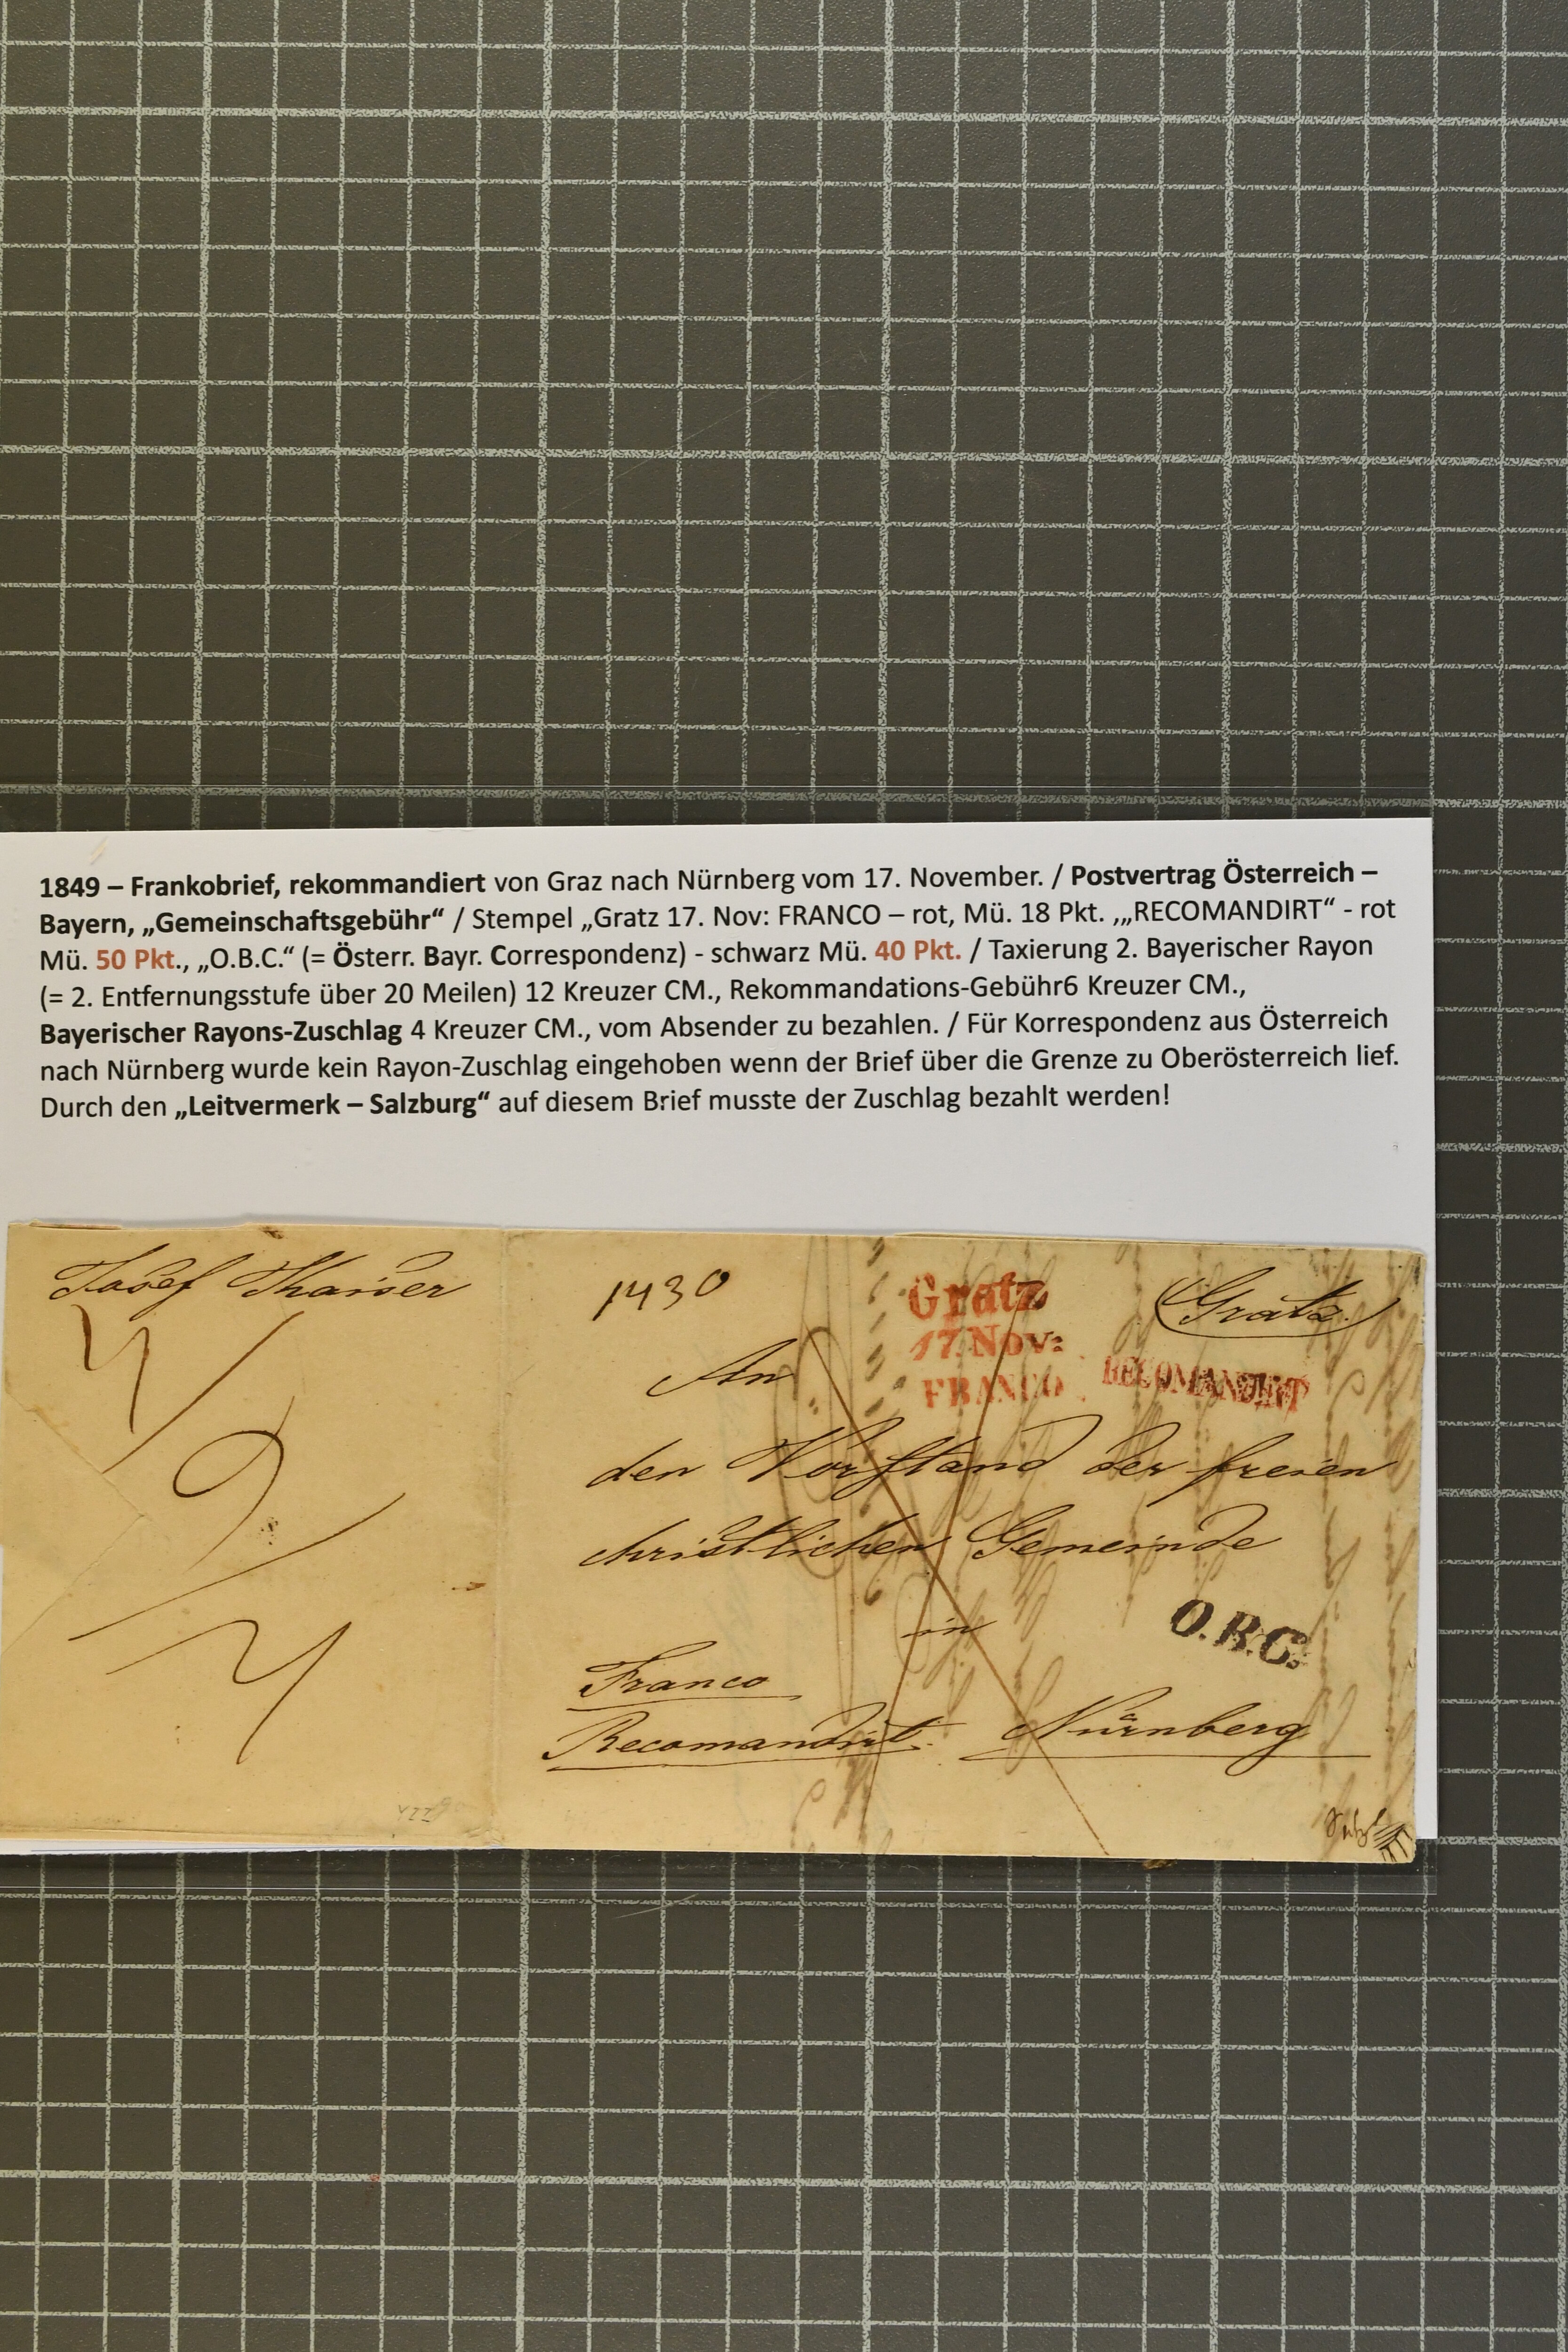 1849 – Frankobrief, rekommandiert von Graz nach Nürnberg vom 17. November. / Postvertrag Österreich –
Bayern, „Gemeinschaftsgebühr“ / Stempel „Gratz 17. Nov: FRANCO – rot, Mü. 18 Pkt. ,„RECOMANDIRT“ - rot
Mü. 50 Pkt., „O.B.C.“ (= Österr. Bayr. Correspondenz) - schwarz Mü. 40 Pkt. / Taxierung 2. Bayerischer Rayon
(= 2. Entfernungsstufe über 20 Meilen) 12 Kreuzer CM., Rekommandations-Gebühr6 Kreuzer CM.,
Bayerischer Rayons-Zuschlag 4 Kreuzer CM., vom Absender zu bezahlen. / Für Korrespondenz aus Österreich
nach Nürnberg wurde kein Rayon-Zuschlag eingehoben wenn der Brief über die Grenze zu Oberösterreich lief.
Durch den „Leitvermerk – Salzburg“ auf diesem Brief musste der Zuschlag bezahlt werden!
Josef Thaiser
1430
Gratz
17. Nov:
FRANCO
RECOMANDIRT
Gratz
An
den Vorstand der freien
christlichen Gemeinde
in
O.B.C.
Franco
Recomandirt.
Nürnberg